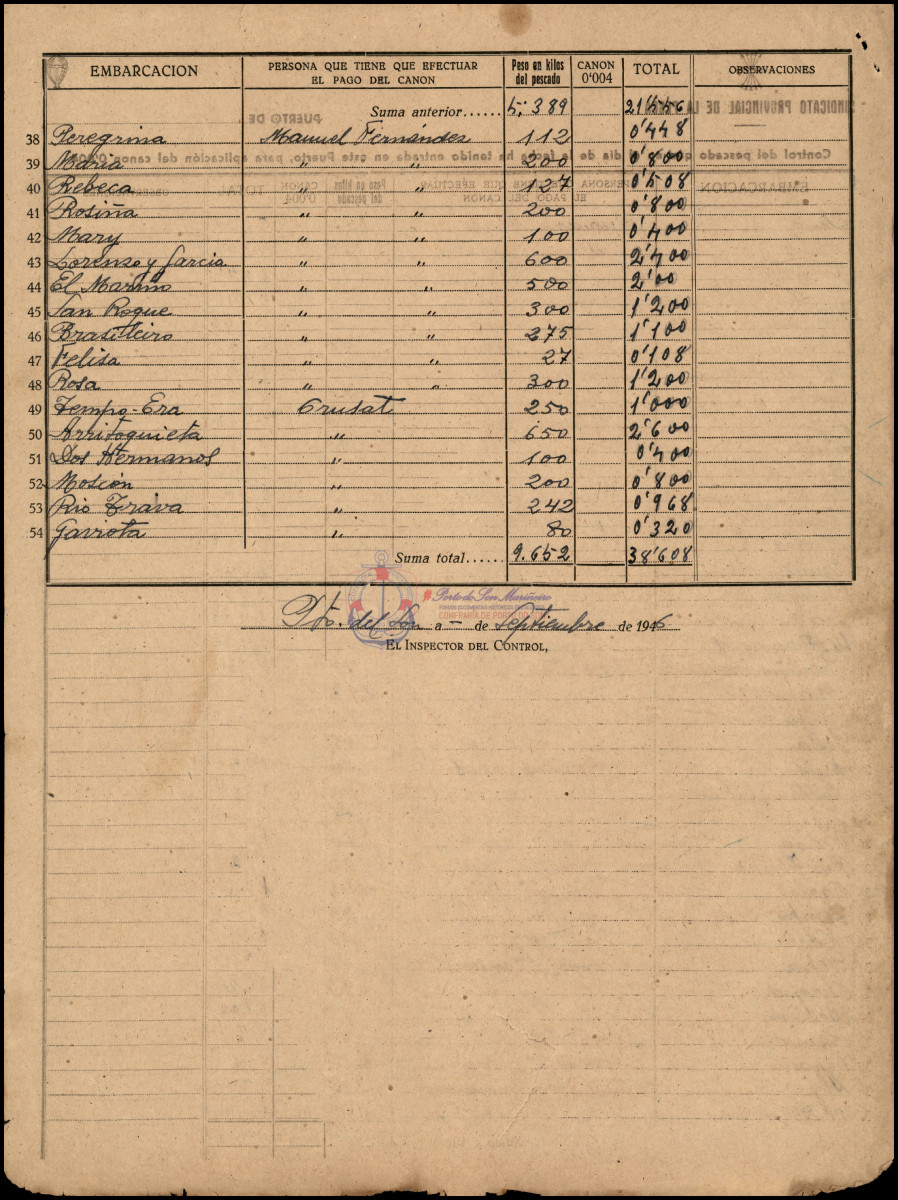 EMBARCACION PERSONA QUE TIENE QUE EFECTUAR EL PAGO DEL CANON Peso en kilos del pescado CANON 0'004 TOTAL OBSERVACIONES
Suma anterior...... 5.389 21'556
38 Peregrina Manuel Fernández 112 0'448
39 Maria " " 200 0'800
40 Rebeca " " 127 0'508
41 Rosiña " " 200 0'800
42 Mary " " 100 0'400
43 Lorenzo y Garcia " " 600 2'400
44 El Marino " " 500 2'00
45 San Roque " " 300 1'200
46 Brasileiro " " 275 1'100
47 Felisa " " 27 0'108
48 Rosa " " 300 1'200
49 Tempo-Era Crusat 250 1'000
50 Arritoquieta " 650 2'600
51 Dos Hermanos " 100 0'400
52 " 200 0'800
53 Rio Trava " 242 0'968
54 Gaviota " 80 0'320
Suma total...... 9.652 38'608
Porto do Son Mariñeiro
Pto. del Son a - de Septiembre de 1946
EL INSPECTOR DEL CONTROL,